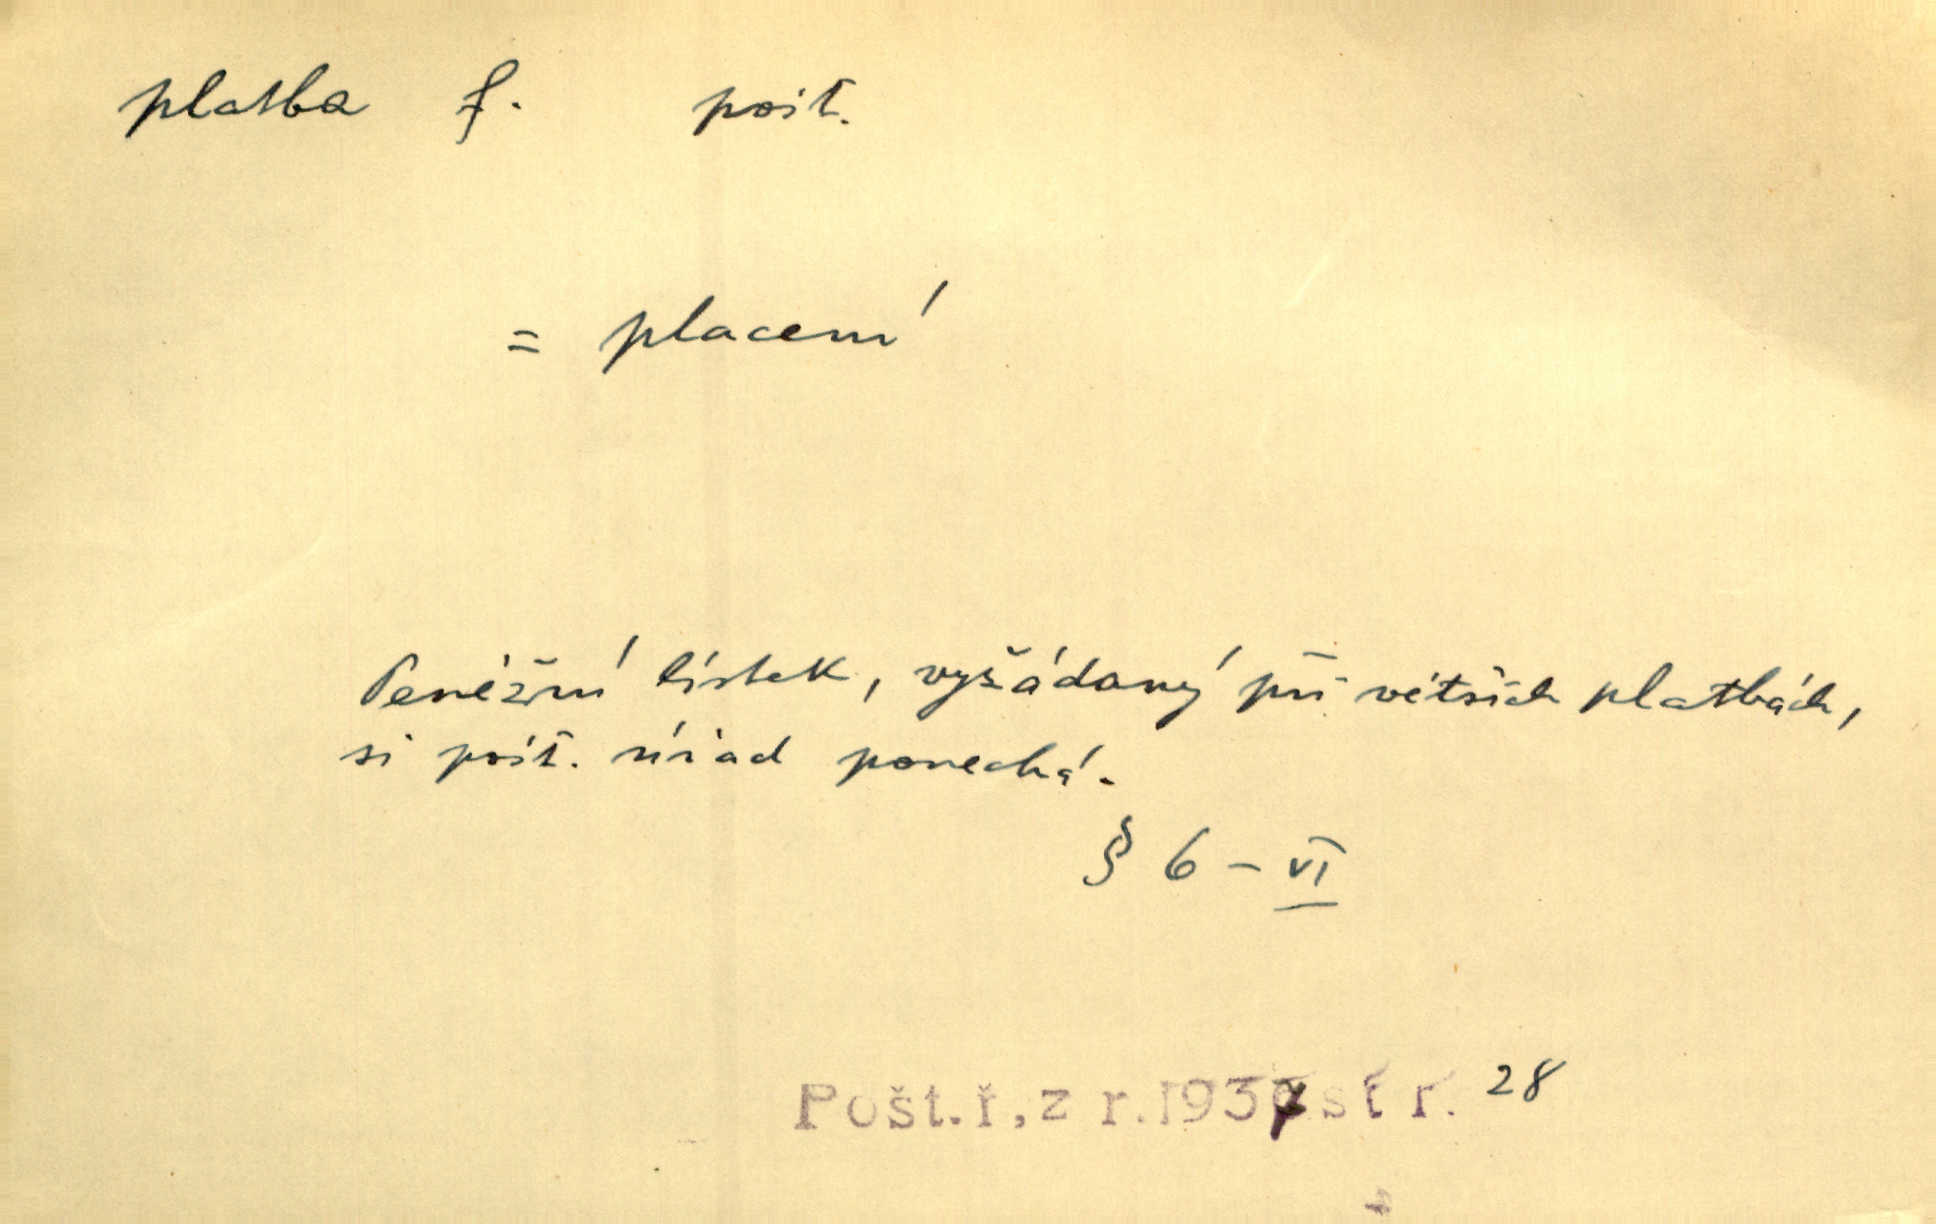 platba f. pošt.
= placení
Peněžní lístek, vyžádaný při větších platbách,
si pošt. úřad ponechá.
§ 6 – VI
Pošt. ř, z r. 1937 str. 28